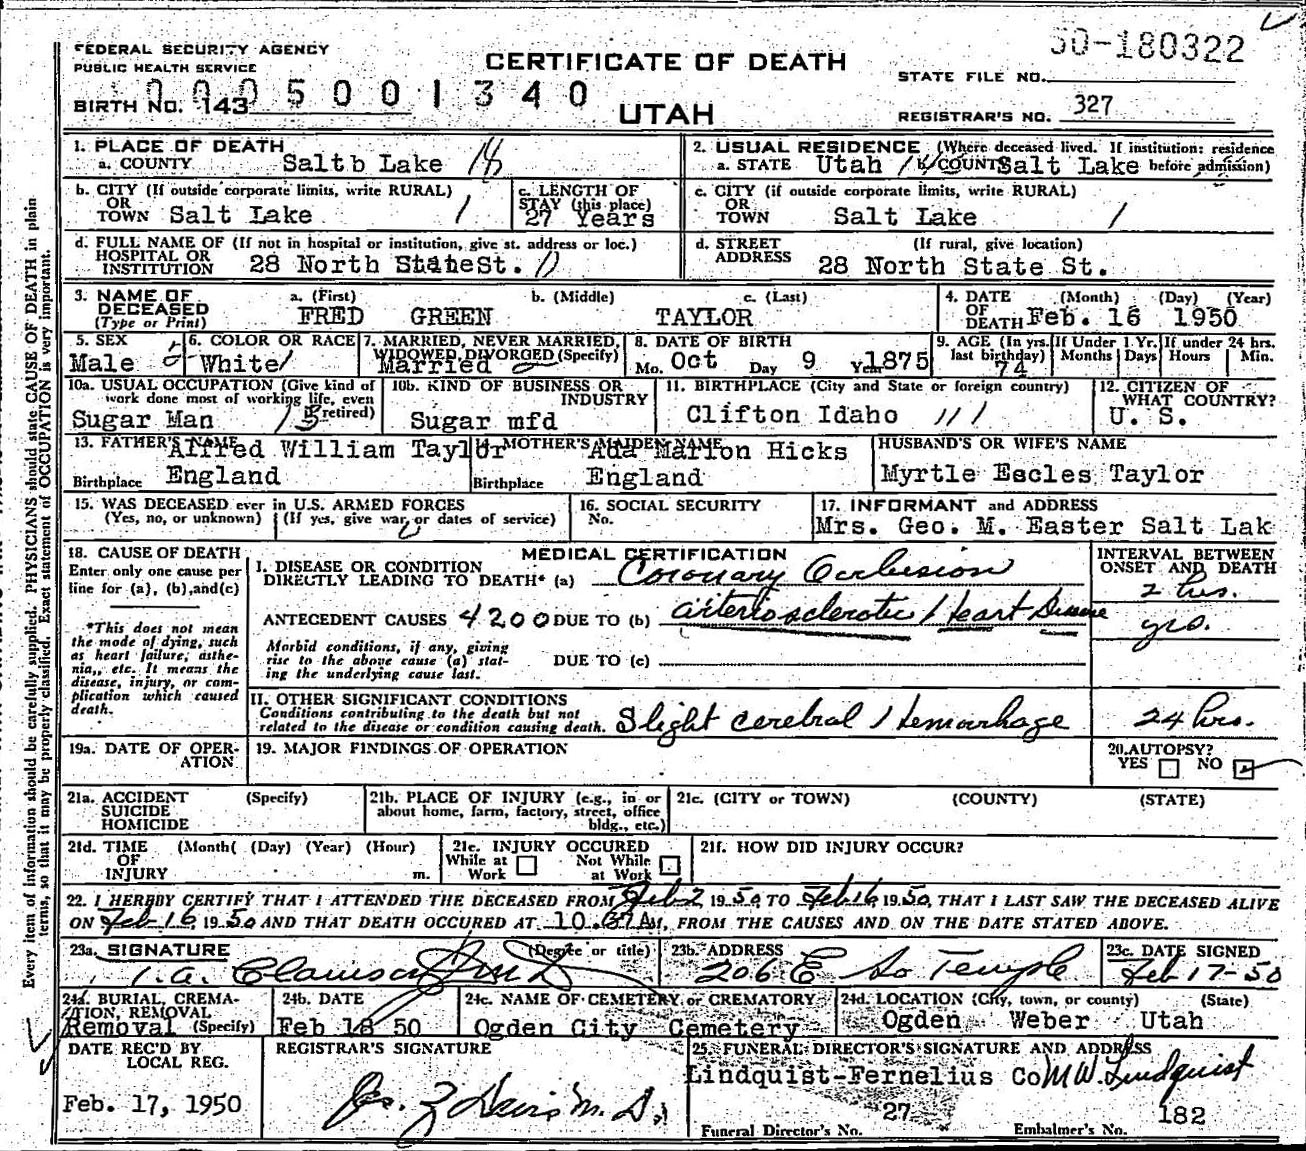 50-180322
FEDERAL SECURITY AGENCY
PUBLIC HEALTH SERVICE
CERTIFICATE OF DEATH
STATE FILE NO.
0005001340
BIRTH NO. 143
UTAH
REGISTRAR'S NO. 327
1. PLACE OF DEATH
a. COUNTY Saltb Lake 18
2. USUAL RESIDENCE (Where deceased lived. If institution: residence before admission)
a. STATE Utah COUNTY Salt Lake
b. CITY (If outside corporate limits, write RURAL)
OR
TOWN Salt Lake 1
c. LENGTH OF
STAY (this place)
27 Years
c. CITY (if outside corporate limits, write RURAL)
OR
TOWN Salt Lake 1
d. FULL NAME OF (If not in hospital or institution, give st. address or loc.)
HOSPITAL OR
INSTITUTION 28 North State St.
d. STREET (If rural, give location)
ADDRESS 28 North State St.
3. NAME OF DECEASED
(Type or Print)
a. (First) b. (Middle) c. (Last)
FRED GREEN TAYLOR
4. DATE OF DEATH (Month) (Day) (Year)
Feb. 16 1950
5. SEX
Male
6. COLOR OR RACE
White
7. MARRIED, NEVER MARRIED,
WIDOWED, DIVORCED (Specify)
Married
8. DATE OF BIRTH
Mo. Oct Day 9 Year 1875
9. AGE (In yrs. last birthday)
74
If Under 1 Yr. Months Days
If under 24 hrs. Hours Min.
10a. USUAL OCCUPATION (Give kind of
work done most of working life, even
if retired)
Sugar Man
10b. KIND OF BUSINESS OR
INDUSTRY
Sugar mfd
11. BIRTHPLACE (City and State or foreign country)
Clifton Idaho
12. CITIZEN OF
WHAT COUNTRY?
U. S.
13. FATHER'S NAME
Alfred William Taylor
Birthplace England
14. MOTHER'S MAIDEN NAME
Ada Marion Hicks
Birthplace England
HUSBAND'S OR WIFE'S NAME
Myrtle Eccles Taylor
15. WAS DECEASED ever in U.S. ARMED FORCES
(Yes, no, or unknown) (If yes, give war or dates of service)
16. SOCIAL SECURITY
No.
17. INFORMANT and ADDRESS
Mrs. Geo. M. Easter Salt Lak
18. CAUSE OF DEATH
Enter only one cause per
line for (a), (b), and (c)
*This does not mean
the mode of dying, such
as heart failure, asthe-
nia, etc. It means the
disease, injury, or com-
plication which caused
death.
MEDICAL CERTIFICATION
I. DISEASE OR CONDITION
DIRECTLY LEADING TO DEATH* (a) Coronary Occlusion
ANTECEDENT CAUSES 4200 DUE TO (b) arteriosclerotic Heart Disease
Morbid conditions, if any, giving
rise to the above cause (a) stat-
ing the underlying cause last.
DUE TO (c)
II. OTHER SIGNIFICANT CONDITIONS
Conditions contributing to the death but not
related to the disease or condition causing death. Slight cerebral Hemorrhage
INTERVAL BETWEEN
ONSET AND DEATH
2 hrs.
yrs.
24 hrs.
19a. DATE OF OPER-
ATION
19. MAJOR FINDINGS OF OPERATION
20. AUTOPSY?
YES NO
21a. ACCIDENT (Specify)
SUICIDE
HOMICIDE
21b. PLACE OF INJURY (e.g., in or
about home, farm, factory, street, office
bldg., etc.)
21c. (CITY or TOWN) (COUNTY) (STATE)
21d. TIME (Month( (Day) (Year) (Hour)
OF
INJURY m.
21e. INJURY OCCURED
While at Work Not While at Work
21f. HOW DID INJURY OCCUR?
22. I HEREBY CERTIFY THAT I ATTENDED THE DECEASED FROM Feb 2 1950 TO Feb 16 1950, THAT I LAST SAW THE DECEASED ALIVE
ON Feb 16, 1950 AND THAT DEATH OCCURED AT 10.37 A M, FROM THE CAUSES AND ON THE DATE STATED ABOVE.
23a. SIGNATURE (Degree or title)
23b. ADDRESS
206 E So Temple
23c. DATE SIGNED
Feb 17-50
24a. BURIAL, CREMA-
TION, REMOVAL
Removal (Specify)
24b. DATE
Feb 18 50
24c. NAME OF CEMETERY or CREMATORY
Ogden City Cemetery
24d. LOCATION (City, town, or county) (State)
Ogden Weber Utah
DATE REC'D BY
LOCAL REG.
Feb. 17, 1950
REGISTRAR'S SIGNATURE
25. FUNERAL DIRECTOR'S SIGNATURE AND ADDRESS
Lindquist-Fernelius Co M W. Lindquist
27 182
Funeral Director's No. Embalmer's No.
Every item of information should be carefully supplied. PHYSICIANS should state CAUSE OF DEATH in plain
terms, so that it may be properly classified. Exact statement of OCCUPATION is very important.